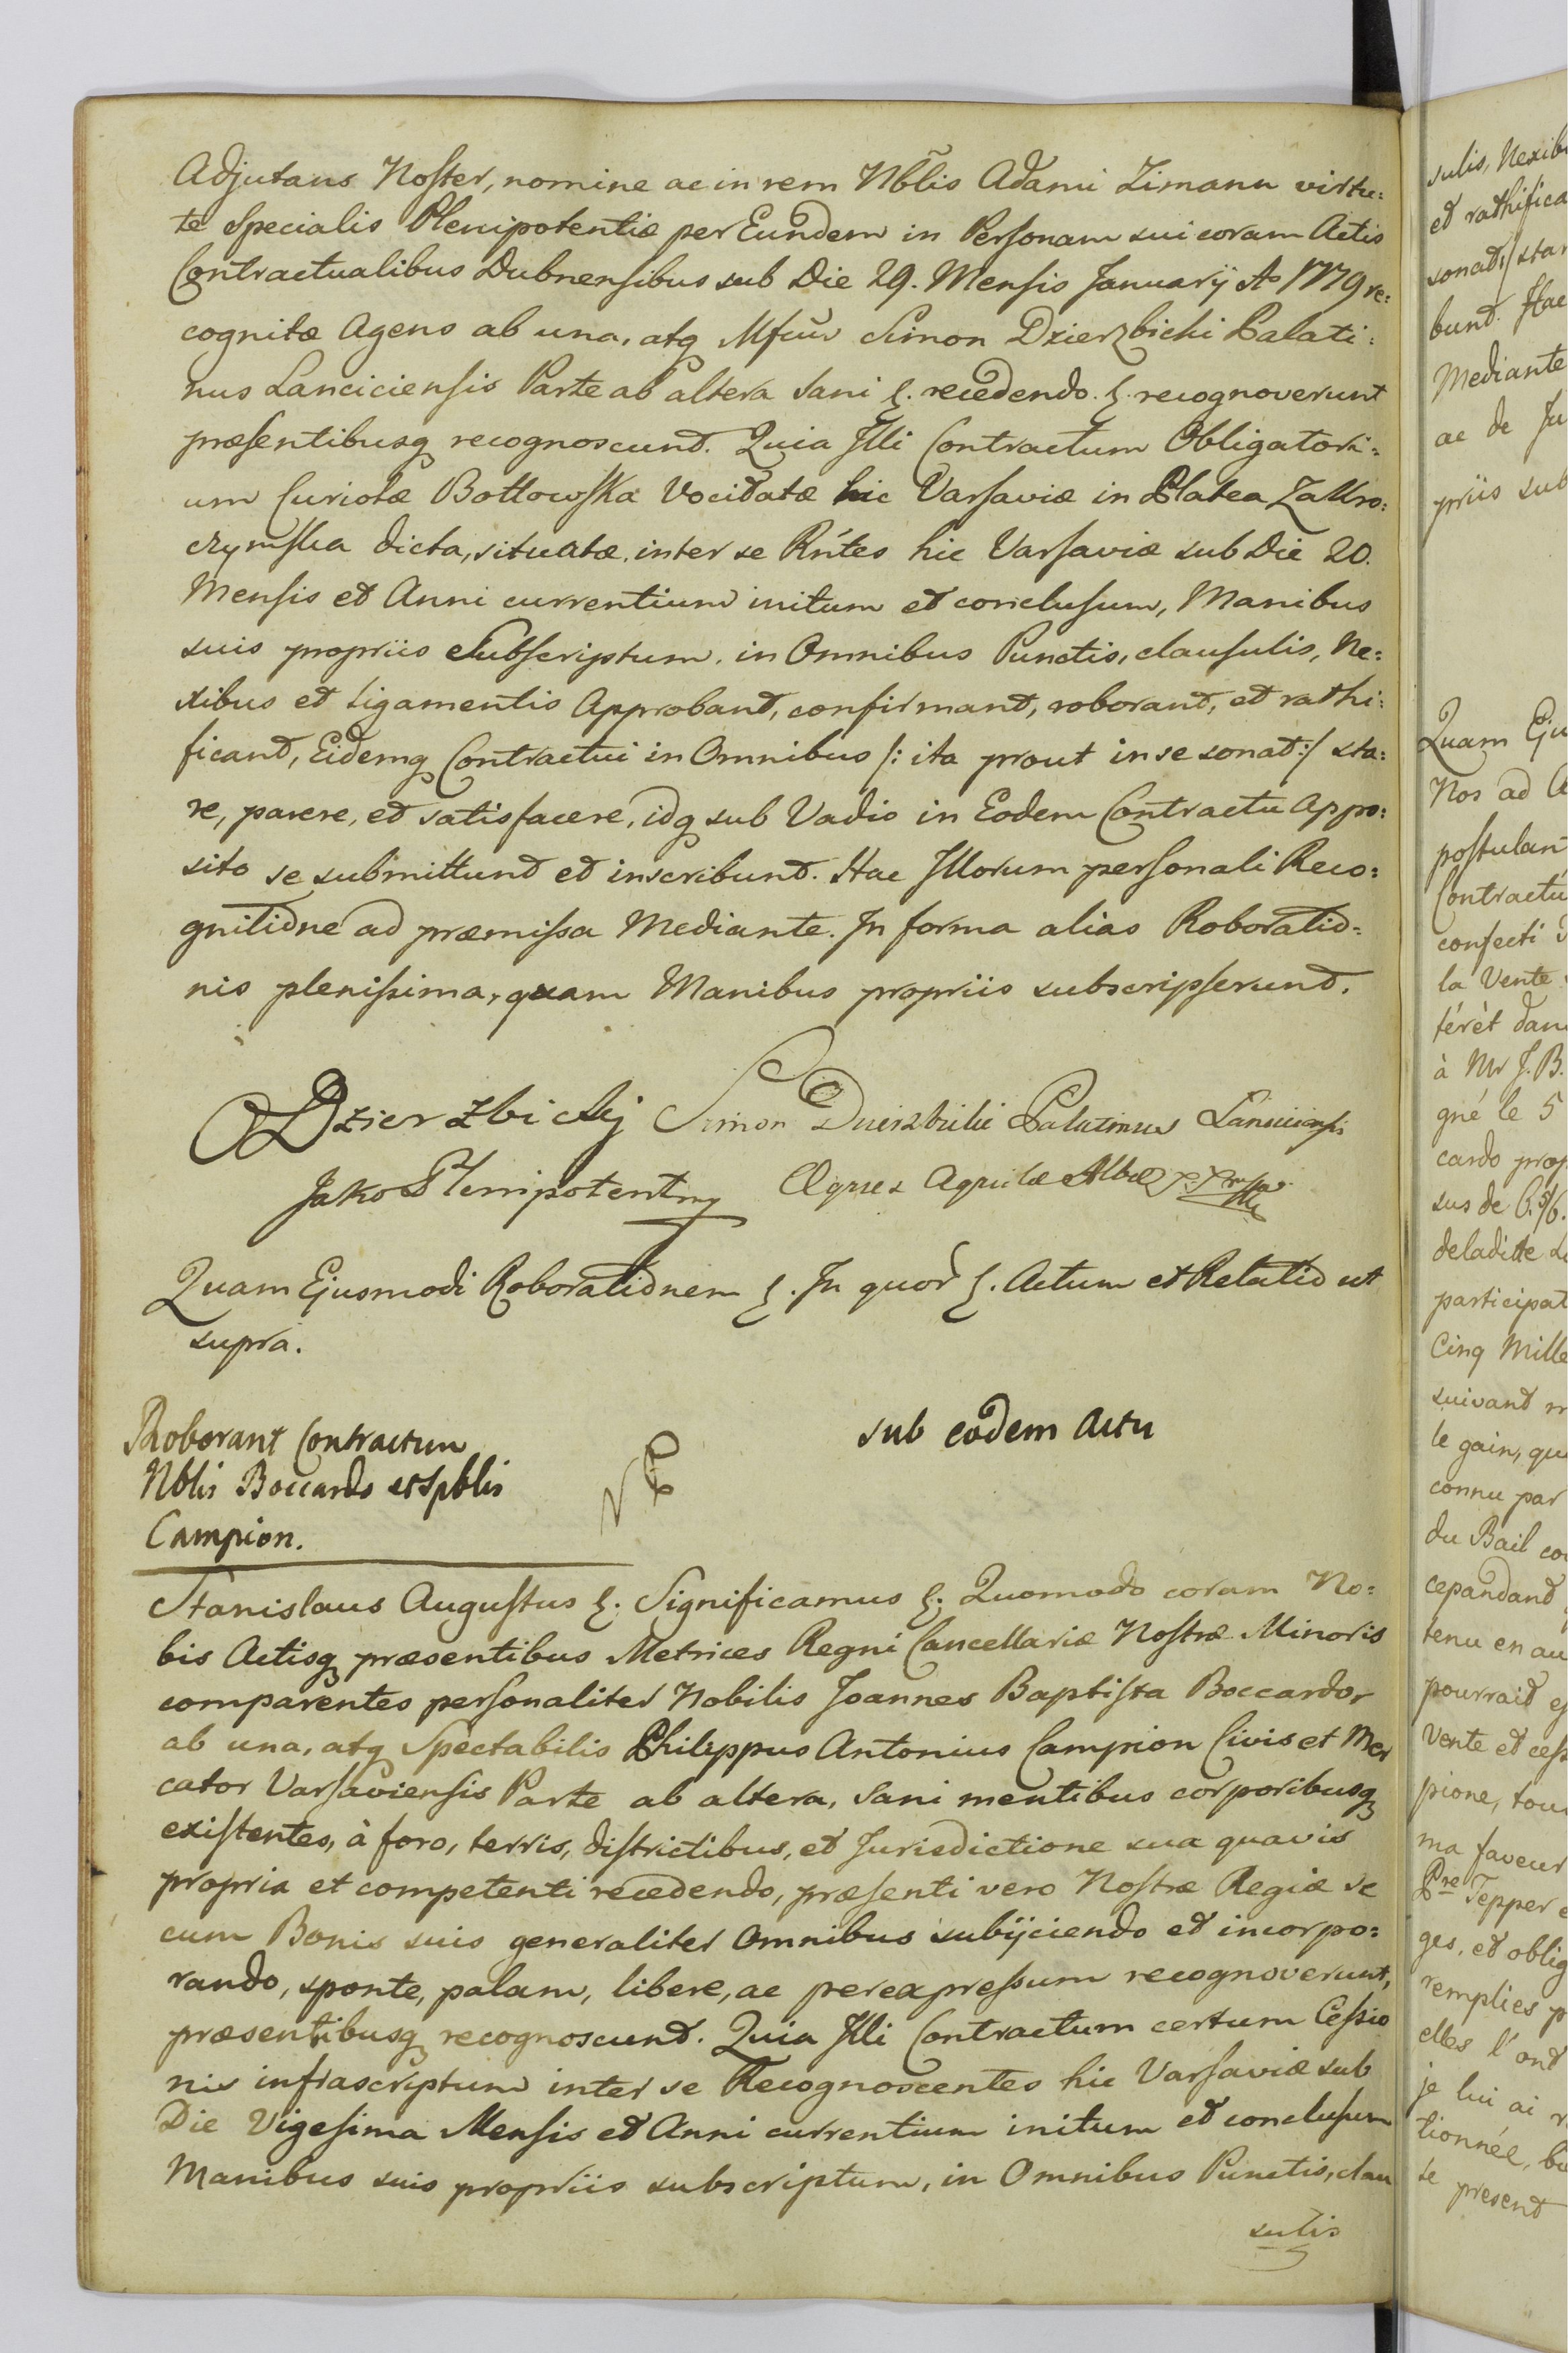 Adjutans Noster, nomine ac in rem Nblis Adami Zimann virtu:
te Specialis Plenipotentiæ per Eundem in Personam sui coram Actis
Contractualibus Dubnensibus sub Die 29. Mensis Januarij Ao 1779 re:
cognitæ Agens ab una, atq Mfcus Simon Dzierzbicki Palati:
nus Lanciciensis Parte ab altera Sani &. recedendo. &. recognoverunt
præsentibusq recognoscunt. Quia Illi Contractum Obligatori:
um Curiolæ Bottowska Vocitatæ hic Varsaviæ in Platea Zakro:
czymska dicta, situatæ, inter se Rntes hic Varsaviæ sub Die 20.
Mensis et Anni currentium initum et conclusum, Manibus
suis propriis Subscriptum, in Omnibus Punctis, clausulis, Ne:
xibus et Ligamentis Approbant, confirmant, roborant, et rathi:
ficant, Eidemq Contractui in Omnibus /: ita prout in se sonat :/ sta:
re, parere, et satisfacere, idq sub Vadio in Eodem Contractu Appo:
sito se submittunt et inscribunt. Hac Illorum personali Reco:
gnitione ad præmissa Mediante. In forma alias Roboratio:
nis plenissima, quam Manibus propriis subscripserunt.
Dzierzbickij Simon Dzierzbicki Palatinus Lanciciensis
Jako Plenipotentny Eques Aquilæ Albæ
Quam Ejusmodi Roborationem &. In quor &. Actum et Relatio ut
supra.
sub eodem Actu
Roborant Contractum
Nblis Boccardo et Spblis
Campion.
Stanislaus Augustus &. Significamus &. Quomodo coram No:
bis Actisq præsentibus Metrices Regni Cancellariæ Nostræ Minoris
comparentes personaliter Nobilis Joannes Baptista Boccardo,
ab una, atq Spectabilis Philippus Antonius Campion Civis et Mer
cator Varsaviensis Parte ab altera, Sani mentibus corporibusq
existentes, à foro, terris, districtibus, et Jurisdictione sua quavis
propria et competenti recedendo, præsenti vero Nostræ Regiæ se
cum Bonis suis generaliter Omnibus subijciendo et incorpo:
rando, sponte, palam, libere, ac per expressum recognoverunt,
præsentibusq recognoscunt. Quia Illi Contractum certum Cessio
nis infrascriptum inter se Recognoscentes hic Varsaviæ sub
Die Vigesima Mensis et Anni currentium initum et conclusum
Manibus suis propriis subscriptum, in Omnibus Punctis, clau
sulis
sulis, Nexib
et rathifica
sonat :/ star
bunt. Hac
Mediante
ac de Ju
priis sub
Quam Eju
Nos ad A
postulan
Contractu
confecti
la Vente
térêt dan
à Mr J. B.
gné le 5
cardo prop
sus de
de ladite
participat
Cinq Mille
suivant
le gain, qu
connu par
du Bail co
cependant
tenu en au
pourrait
Vente et cess
pione, tou
ma faveur
Pre Tepper
ges, et oblig
remplies p
elles l'ont
je lui ai
tionnée, bo
le present